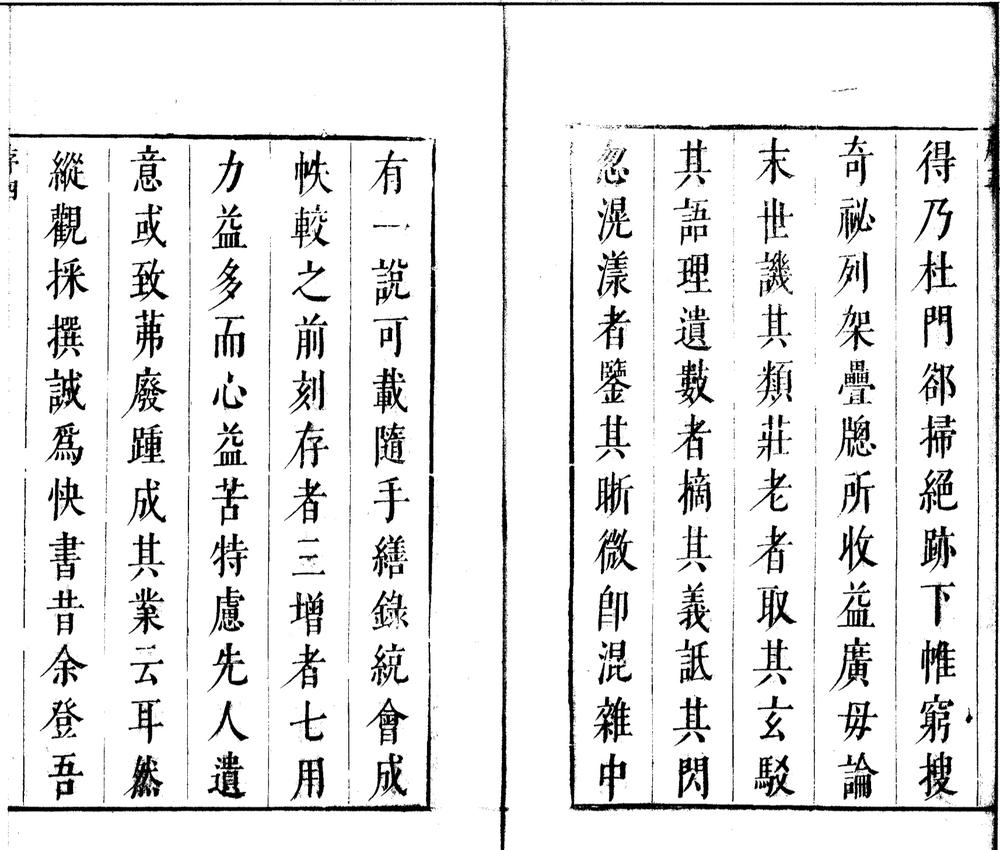 得乃杜門郤掃絕跡下帷窮搜
奇祕列架疊牕所收益廣毋論
末世譏其類莊老者取其玄駁
其語理遺數者摘其義詆其閃
忽滉漾者鑒其晰微即混雜中
有一說可載隨手繕錄統會成
帙較之前刻存者三增者七用
力益多而心益苦特慮先人遺
意或致茀廢踵成其業云耳然
縱觀採撰誠爲快書昔余登吾
序四